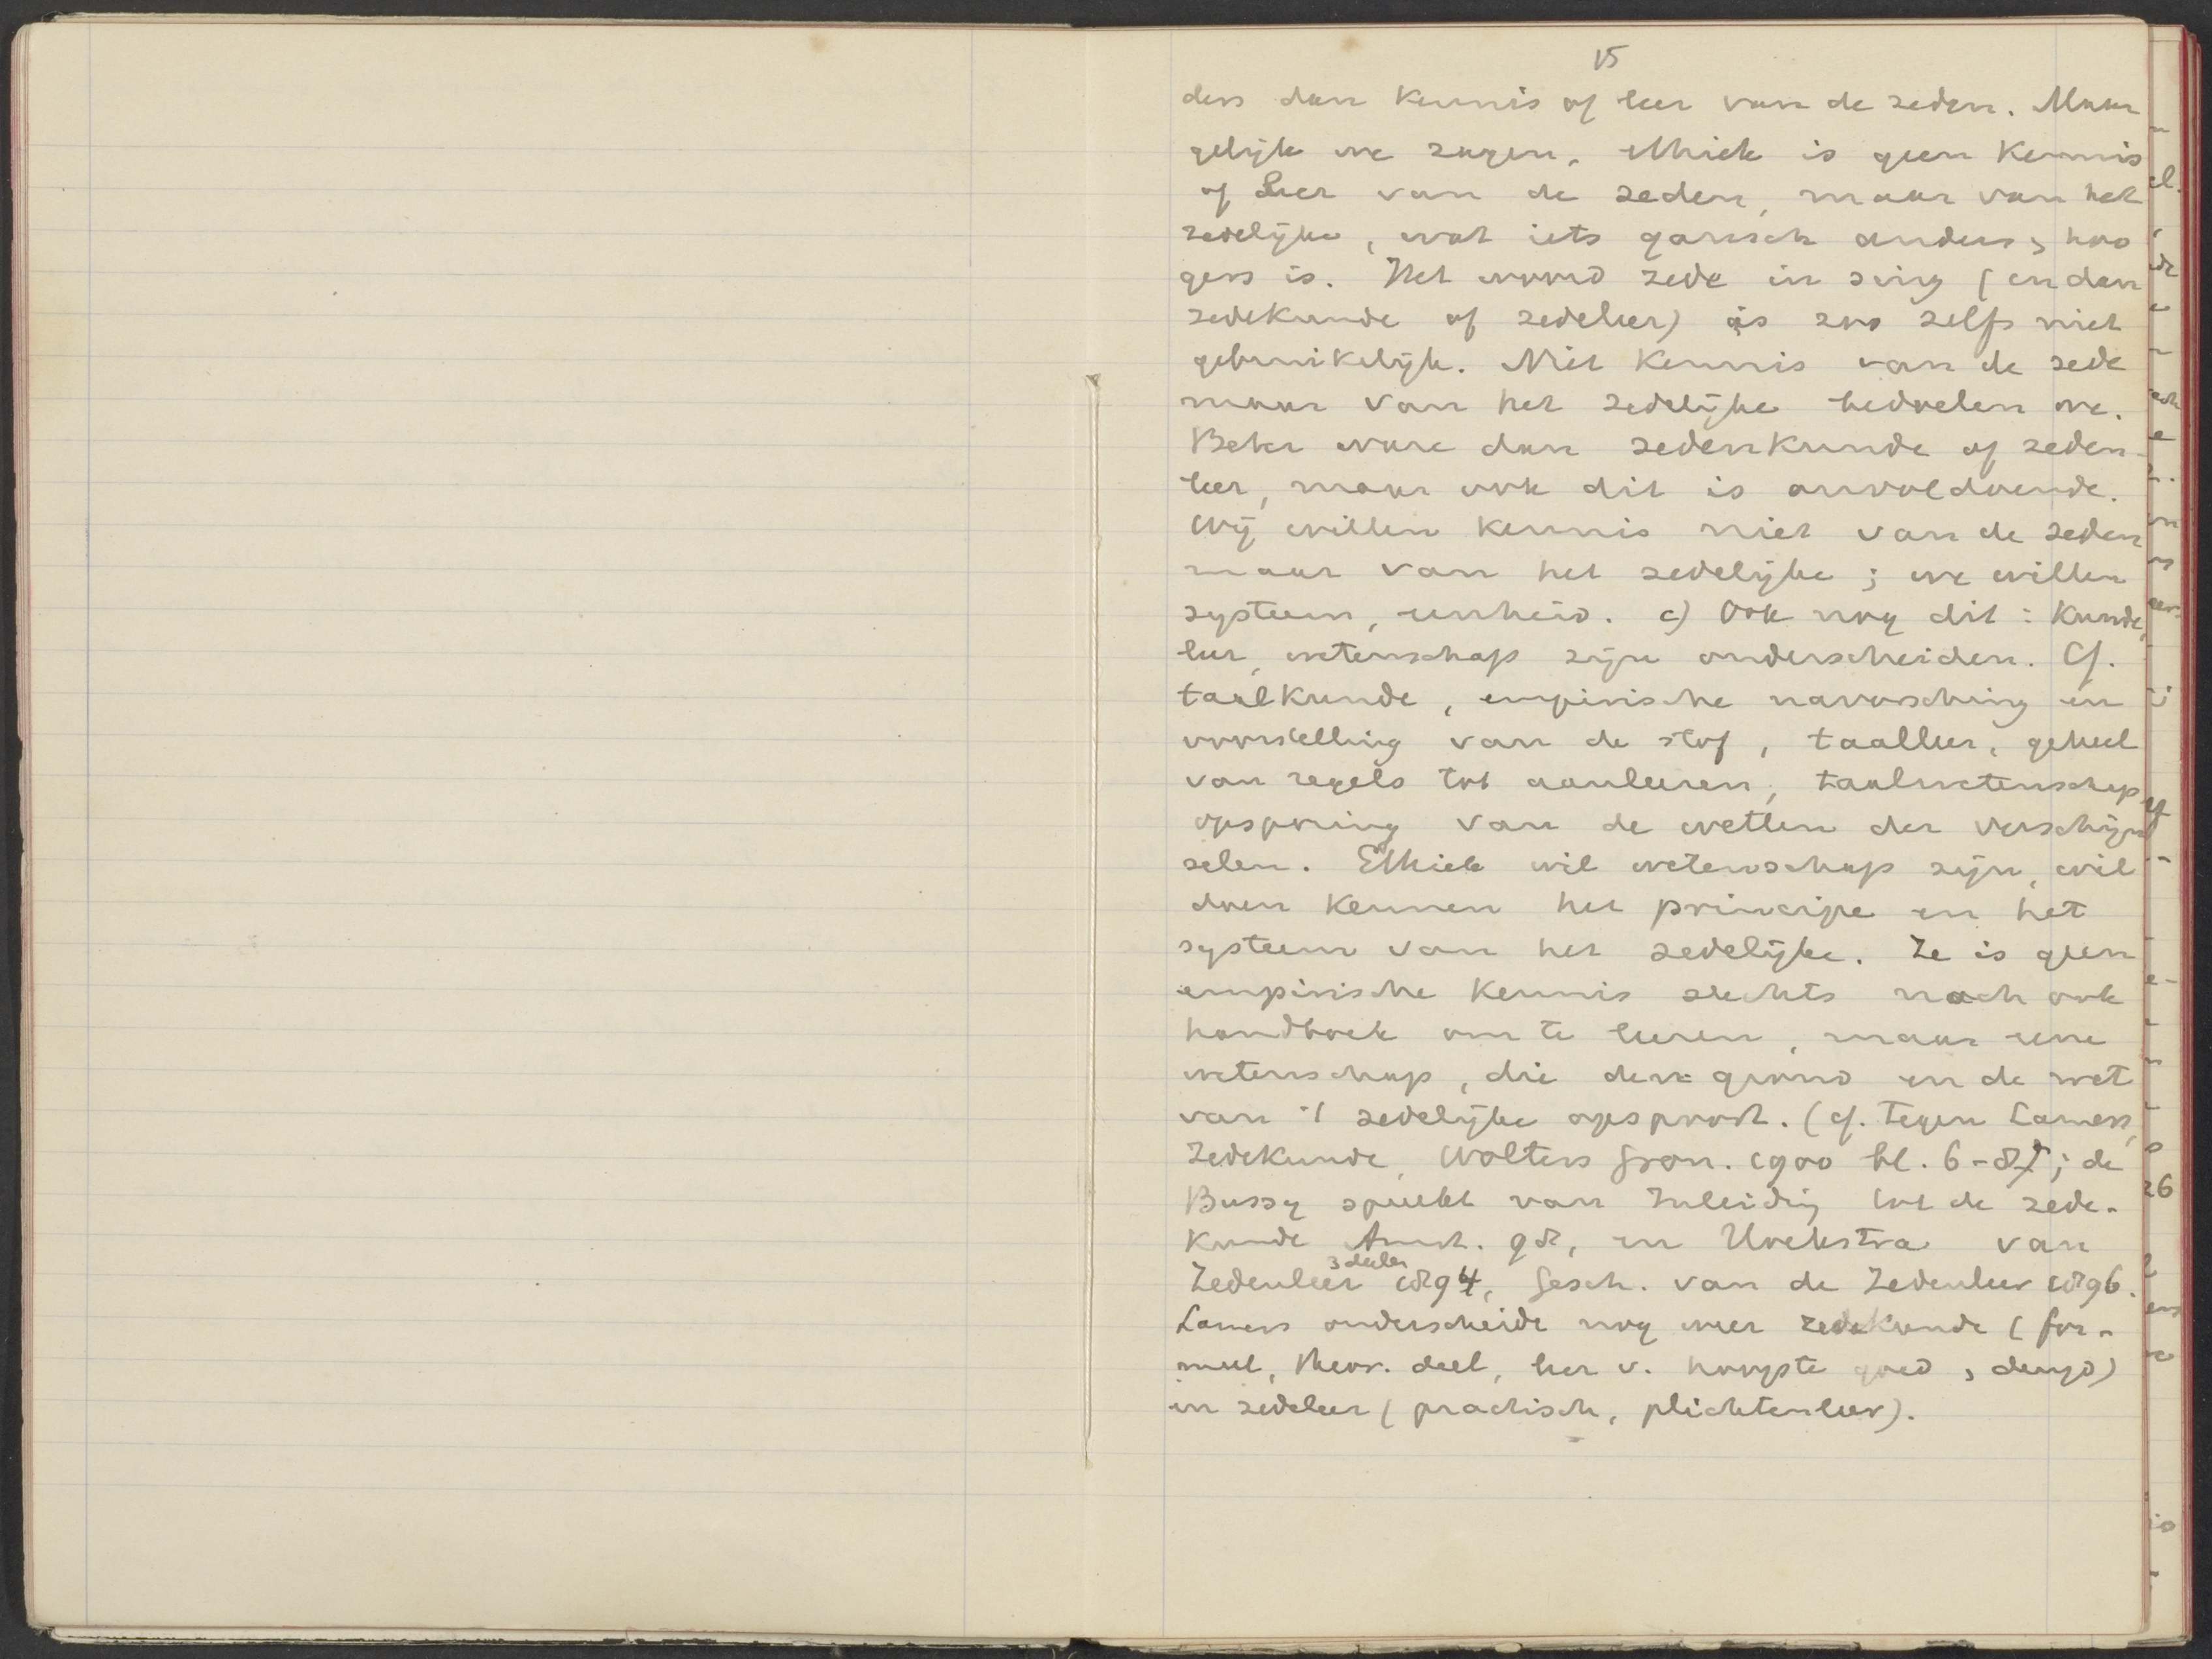 15
ders dan kennis of leer van de zeden. Maar
gelijk we zagen, ethiek is geen kennis
of Leer van de zeden, maar van het
zedelijke, wat iets gansch anders, hoo
gers is. Het woord zede in sing (en dan
zedekunde of zedeleer) is zoo zelfs niet
gebruikelijk. Niet kennis van de zede
maar van het zedelijke bedoelen we.
Beter ware dan zedenkunde of zeden-
leer, maar ook dit is onvoldoende.
Wij willen kennis niet van de zeden
maar van het zedelijke; we willen
systeem, eenheid. c) Ook nog dit: Kunde,
leer, wetenschap zijn onderscheiden. Cf.
taalkunde, empirische navorsching en
voorstelling van de stof, taalleer, geheel
van regels tot aanleeren, taalwetenschap
opsporing van de wetten der verschijn
selen. Ethiek wil wetenschap zijn, wil
doen kennen het principe en het
systeem van het zedelijke. Ze is geen
empirische kennis slechts noch ook
handboek om te leeren, maar eene
wetenschap, die den grond en de wet
van 't zedelijke opspoort. (cf. tegen Lamers,
Zedekunde, Wolters Gron. 1900 bl. 6-8; de
Bussy spreekt van Inleiding tot de zede-
kunde Amst. 98, en Hoekstra van
Zedenleer 3 deelen 1894, Gesch. van de Zedenleer 1896.
Lamers onderscheidt nog weer zedekunde (for-
meel, theor. deel, leer v. hoogste goed, deugd)
en zedeleer (practisch, plichtenleer).